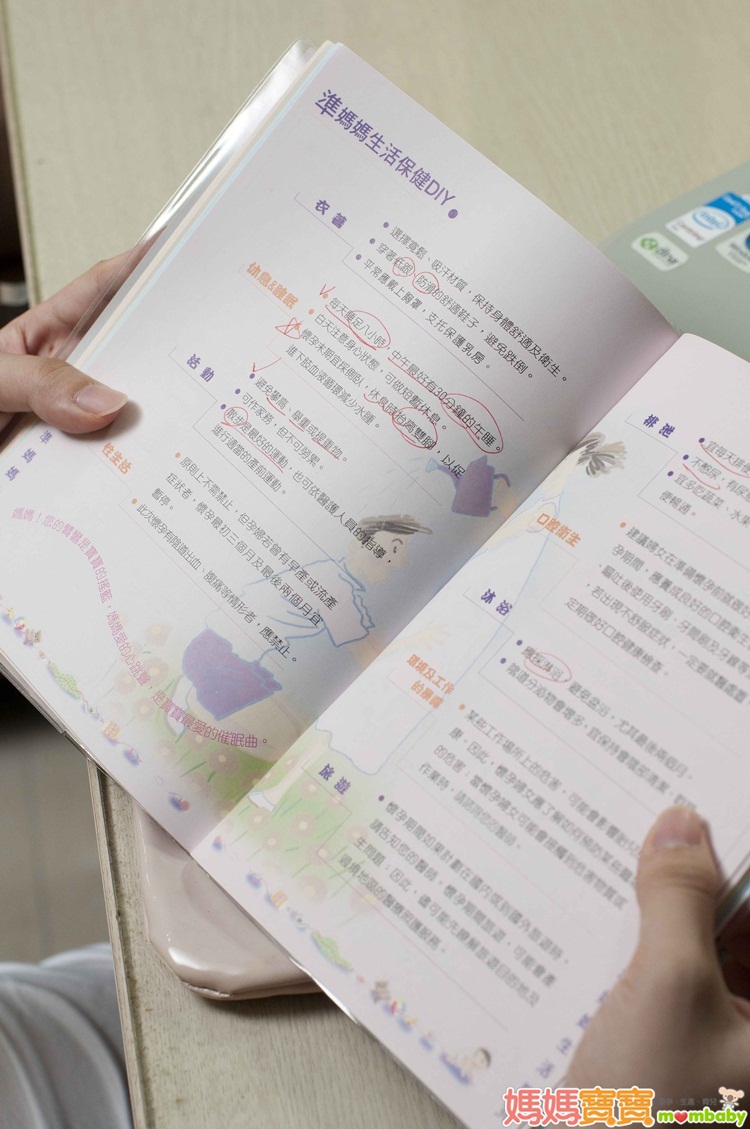 準媽媽生活保健DIY
衣著
• 選擇寬鬆、吸汗材質，保持身體舒適及衛生。
• 穿著低跟、防滑的舒適鞋子，避免跌倒。
• 平常應戴上胸罩，支托保護乳房。
休息&睡眠
• 每天應足八小時，中午最好有30分鐘的午睡。
• 白天注意身心狀態，可做短暫休息。
• 懷孕末期宜採側臥，休息時抬高雙腳，以促
進下肢血液循環減少水腫。
活動
• 避免攀高、舉重或提重物。
• 可作家務，但不可勞累。
• 散步是最好的運動，也可依醫護人員的指導，
進行適當的產前運動。
性生活
• 原則上不需禁止，但孕婦若曾有早產或流產
症狀者，懷孕最初三個月及最後兩個月宜
暫停。
• 此次懷孕有陰道出血、腹痛等情形者，應禁止。
媽媽！您的臂彎是寶寶的搖籃，媽媽愛的心跳聲，是寶寶最愛的催眠曲。
準媽媽
排泄
• 宜每天排
• 不憋尿，有尿
• 宜多吃蔬菜、水
便暢通。
口腔衛生
• 建議婦女在準備懷孕前
孕期間，應養成良好的口腔衛
嘔吐後使用牙刷、牙間刷及牙線
，若出現不舒服症狀，一定要
定期做好口腔健康檢查。
沐浴
• 淋浴，避免盆浴，尤其最後兩個月。
• 陰道分泌物會增多，宜保持會陰部清潔
環境及工作
的選擇
• 某些工作場所上的危害，可能會影響胎兒
康，因此，懷孕婦女應了解如何預防某些
的危害；當懷孕婦女可能會接觸到危害物質或
作業時，請諮詢您的醫師。
旅遊
• 懷孕期間如果計劃在國內或到國外旅遊時，
請告知您的醫師，懷孕期間旅遊，可能會產
生問題；因此，儘可能先瞭解旅遊目的地及
過境地區的醫療照護服務。
intel
媽媽寶寶
mombaby